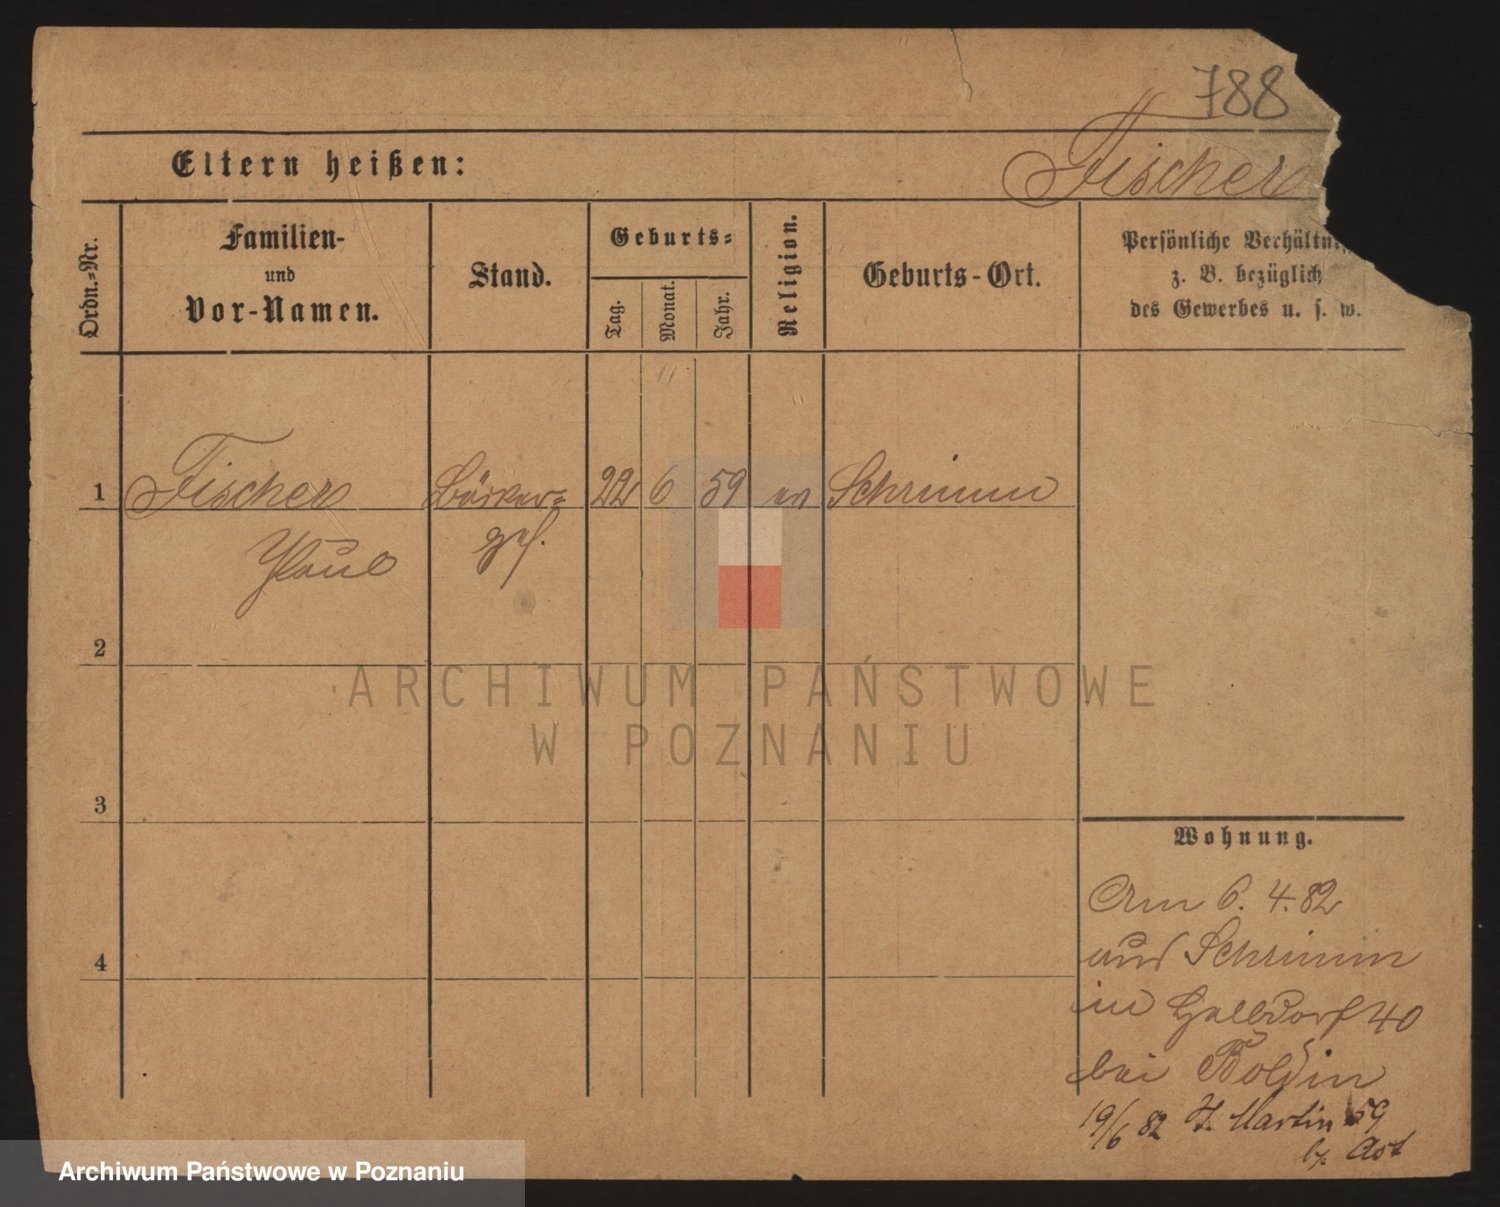 788
Eltern heißen:
Fischer
Ordn.-Nr.
Familien-
und
Vor-Namen.
Stand.
Geburts-
Tag.
Monat.
Jahr.
Religion.
Geburts-Ort.
Persönliche Verhältni
z. B. bezüglich
des Gewerbes u. s. w.
1 Fischer Bäcker= 22 6 59 ev Schrimm
Paul ges.
2
ARCHIWUM PAŃSTWOWE
W POZNANIU
3
Wohnung.
Am 6. 4. 82
aus Schrimm
4
in Halbdorf 40
bei Boldin
19/6 82 St. Martin 59
b. Ast
Archiwum Państwowe w Poznaniu